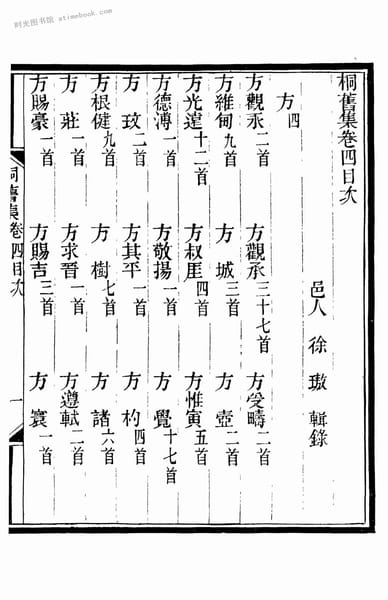 时光图书馆 - atimebook.com
桐舊集卷四目次
邑人 徐璈 輯錄
方四
方觀永二首 方觀承三十七首 方受疇二首
方維甸九首 方城三首 方壺二首
方光遑十二首 方叔厓四首 方惟寅五首
方德溥一首 方敬揚一首 方覺十七首
方玫二首 方其平一首 方杓四首
方根健九首 方樹七首 方諸六首
方莊一首 方求晉一首 方遵軾二首
方賜豪一首 方賜吉三首 方寰一首
桐舊集卷四目次
一